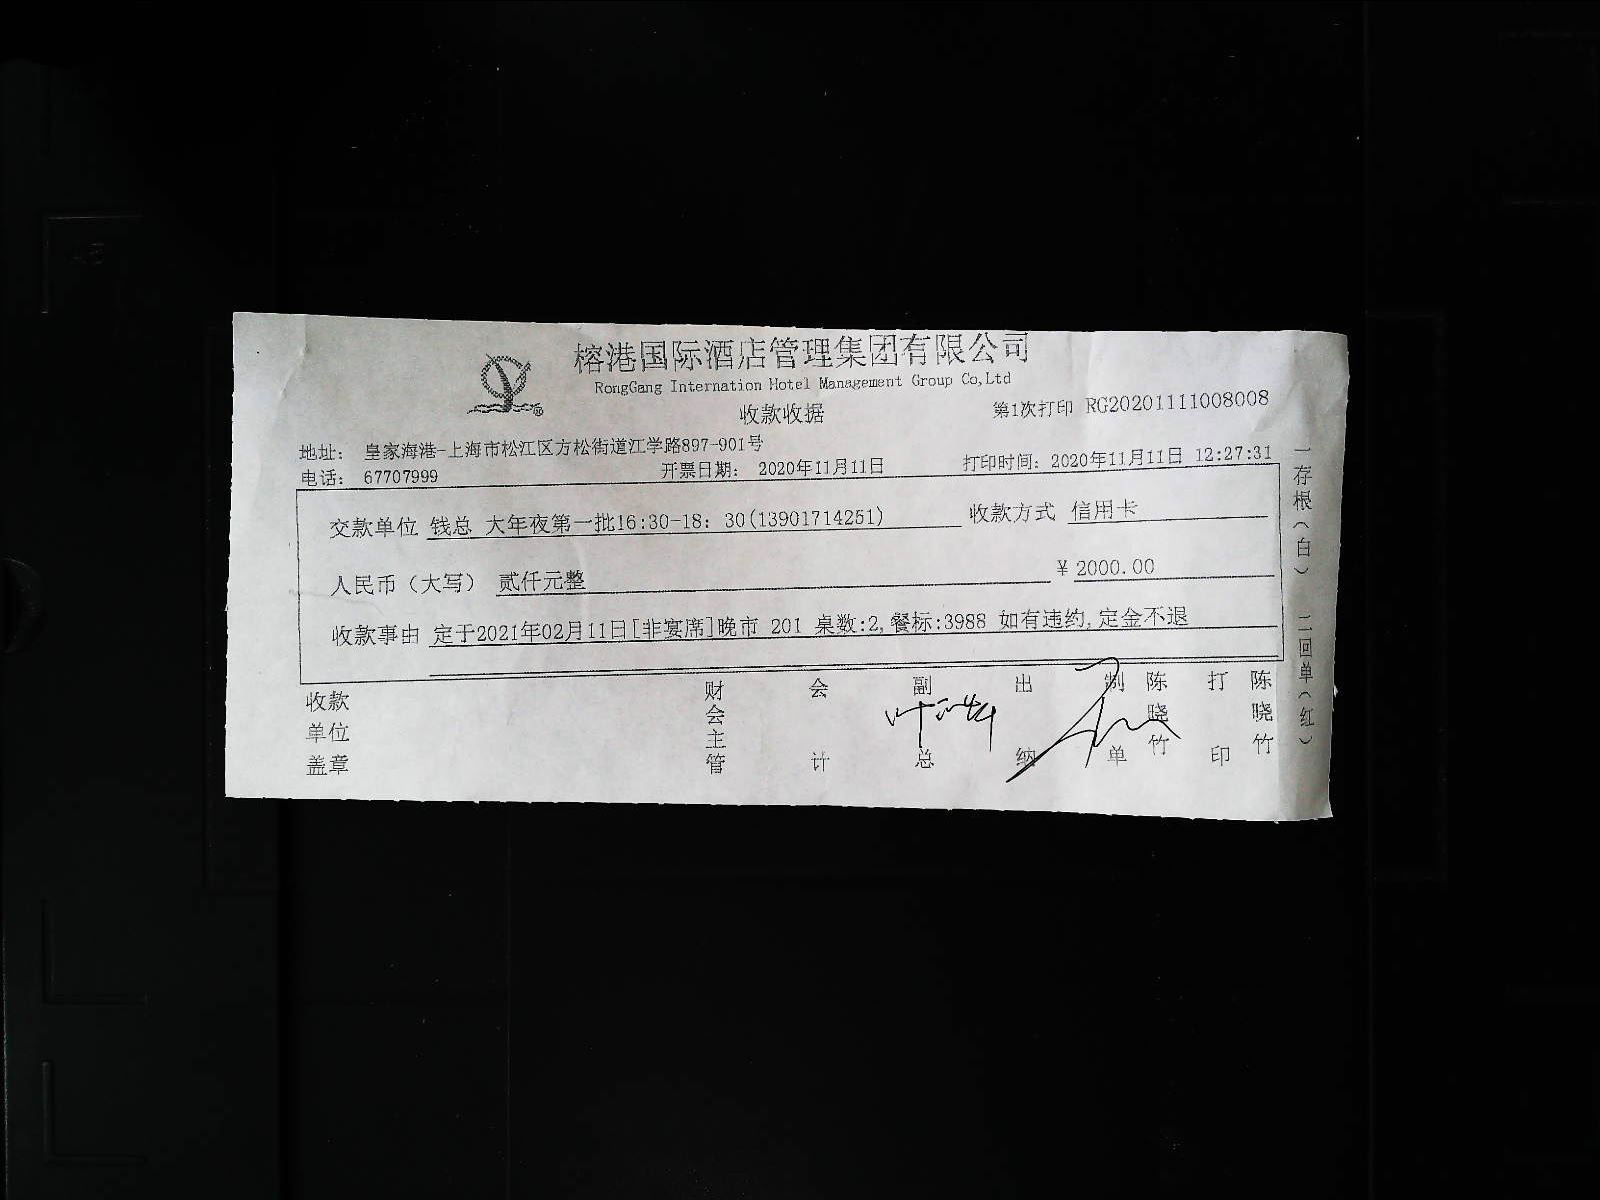 榕港国际酒店管理集团有限公司
RongGang Internation Hotel Management Group Co,Ltd
收款收据
第1次打印 RG20201111008008
地址： 皇家海港-上海市松江区方松街道江学路897-901号
电话： 67707999 开票日期： 2020年11月11日 打印时间：2020年11月11日 12:27:31
交款单位 钱总 大年夜第一批16:30-18：30(13901714251) 收款方式 信用卡
人民币（大写） 贰仟元整 ¥ 2000.00
收款事由 定于2021年02月11日[非宴席]晚市 201 桌数:2,餐标:3988 如有违约,定金不退
收款单位盖章 财会主管 会计 副总 出纳 制单 陈晓竹 打印 陈晓竹
一存根（白） 二回单（红）